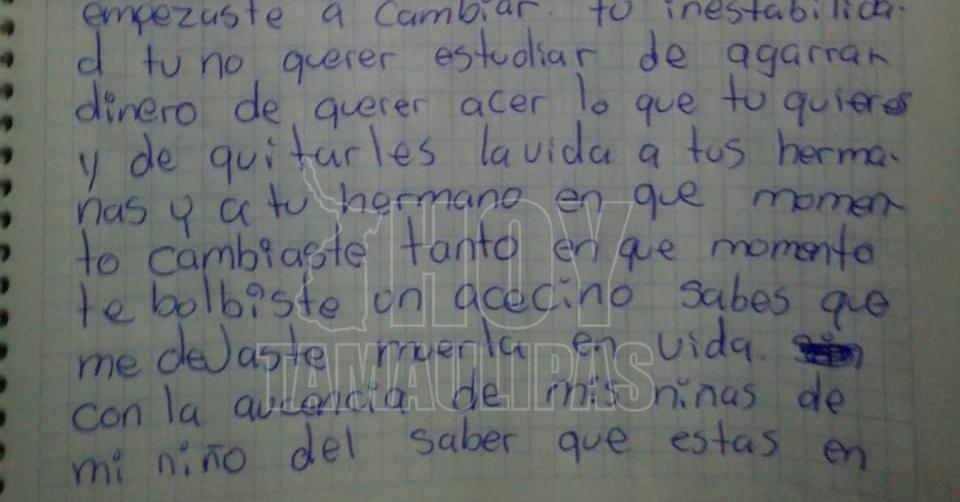 empezaste a cambiar. tu inestabilida-
d tu no querer estudiar de agarrar
dinero de querer acer lo que tu quieres
y de quitarles la vida a tus herma-
nas y a tu hermano en que momen
to cambiaste tanto en que momento
te bolbiste un acecino sabes que
me dejaste muerta en vida.
con la aucencia de mis niñas de
mi niño del saber que estas en
HOY
TAMAULIPAS